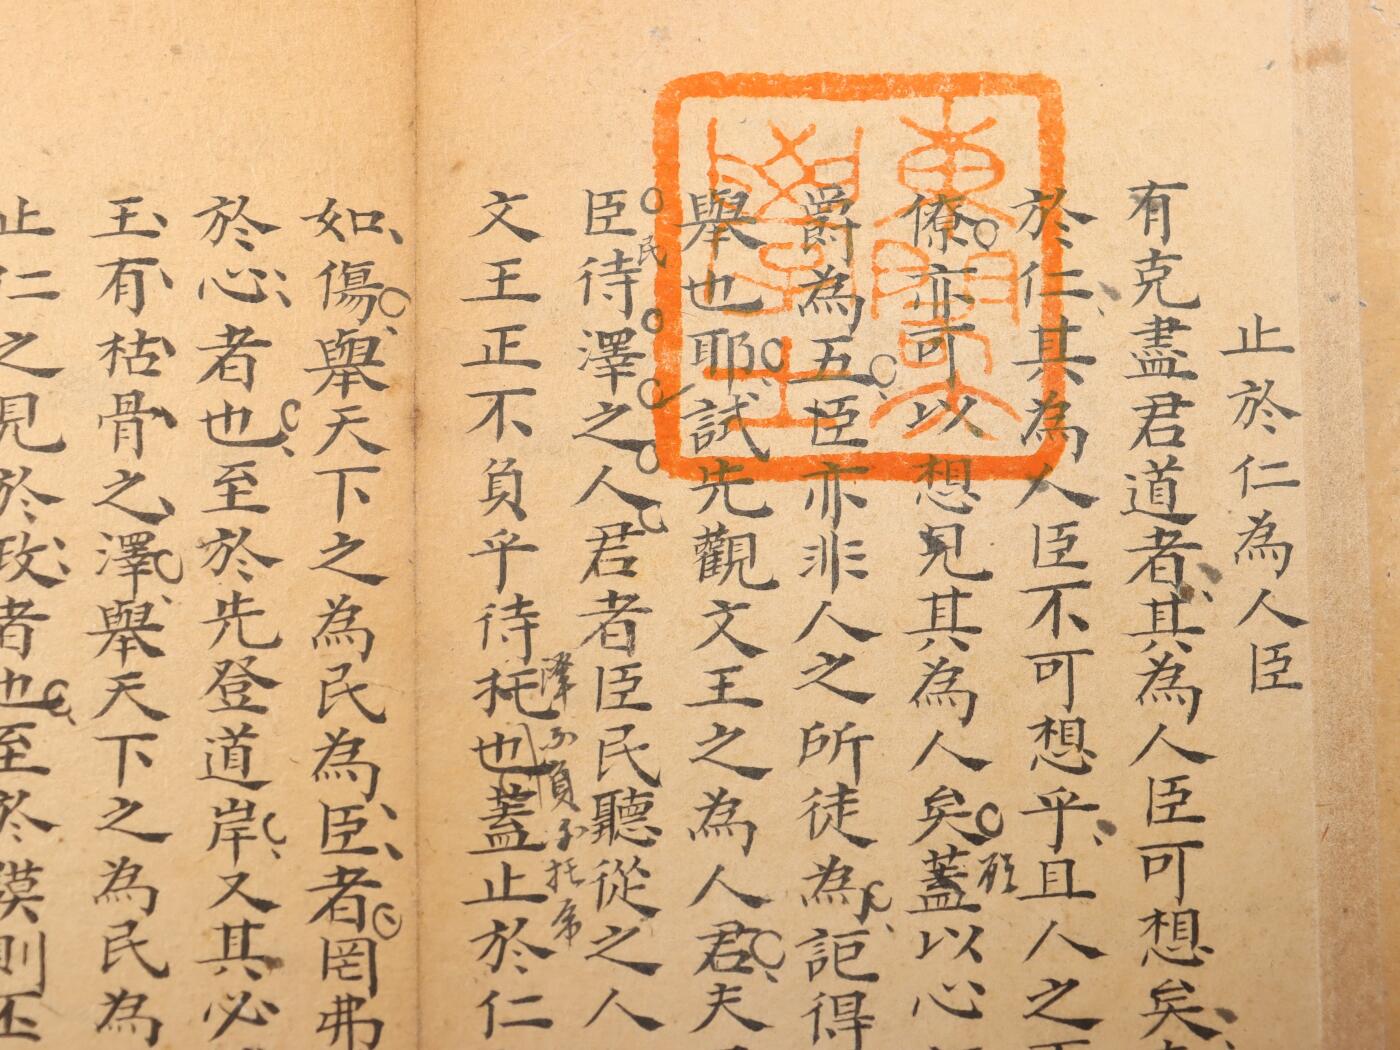 止於仁為人臣
有克盡君道者其為人臣可想矣
於仁其為人臣不可想乎且人之
僚亦可以想見其為人矣蓋以心
爵為五臣亦非人之所徒為詎得
舉也耶試先觀文王之為人君夫
臣待澤之人君者臣民聽從之人
民
文王正不負乎待托也蓋止於仁
如傷舉天下之為民為臣者罔弗
於心者也至於先登道岸又其必
王有枯骨之澤舉天下之為民為
止仁之見於政者也至於謨則丕